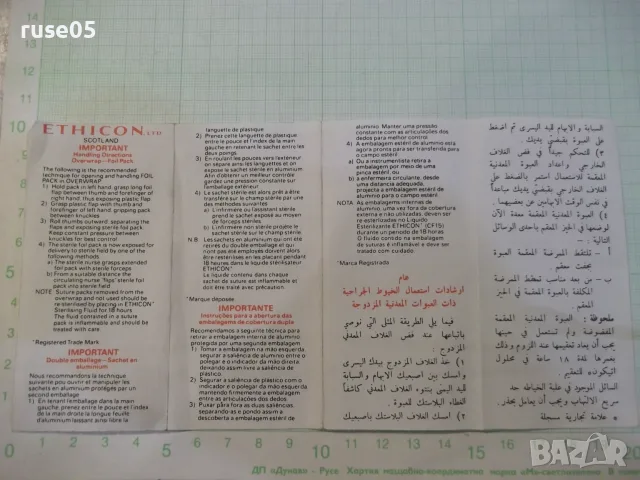 ruse05
ETHICON LTD
SCOTLAND
IMPORTANT
Handling Directions
Overwrap - Foil Pack
The following is the recommended
technique for opening and handling FOIL
PACK in OVERWRAP
1) Hold pack in left hand, grasp long foil
flap between thumb and forefinger of
right hand, thus exposing plastic flap
2) Grasp plastic flap with thumb and
forefinger of left hand, gripping pack
between knuckles
3) Roll thumbs outward separating the
flaps and exposing sterile foil pack
Keep constant pressure between
knuckles for best control
4) The sterile foil pack is now exposed for
delivery to sterile field by one of the
following methods
a) The sterile nurse grasps extended
foil pack with sterile forceps
b) From a suitable distance the
circulating nurse "flips" sterile foil
pack into sterile field
NOTE Suture packs removed from the
overwrap and not used should be
re-sterilised by placing in ETHICON*
Sterilising Fluid for 18 hours
The fluid contained in a suture
pack is inflammable and should be
treated with care
*Registered Trade Mark
IMPORTANT
Double emballage - Sachet en
aluminium
Nous recommandons la technique
suivante pour ouvrir et manipuler les
sachets en aluminium protégés par un
second emballage
1) En tenant l'emballage dans la main
gauche, prenez entre le pouce et l'index
de la main droite la longue feuille
d'aluminium laissant ainsi libre la
languette de plastique
2) Prenez cette languette de plastique
entre le pouce et l'index de la main
gauche en resserrant le sachet entre les
deux poings.
3) En roulant les pouces vers l'extérieur
on sépare ainsi les languettes et on
expose le sachet stérile en aluminium
Afin d'obtenir un meilleur contrôle
garder une pression constante sur
l'emballage
4) Le sachet stérile est alors prêt à être
transféré sur le champ stérile par une
des méthodes suivantes
a) L'infirmière ou l'assistant stérile
prend le sachet exposé au moyen
de forceps stériles.
b) L'infirmière non stérile projette le
sachet stérile vers le champ stérile
N.B. Les sachets en aluminium qui ont été
retirés du double emballage et qui
n'ont pas été employés doivent alors
être restérilisés en les plaçant pendant
18 heures dans le liquide stérilisateur
ETHICON*
Le liquide contenu dans chaque
sachet de suture est inflammable et
doit être traité avec précaution.
*Marque déposée
IMPORTANTE
Instruções para a abertura das
embalagems de cobertura dupla
Recomendamos a seguinte técnica de abrir
retirar e proteger a embalagem de alumínio
contida por uma segunda embalagem:
1) Tomar a embalagem na mão esquerda
segurar a saliência de alumínio entre o
polegar e o indicador da mão direita
deixando assim livre a saliência de
plástico.
2) Segurar a saliência de plástico com o
indicador e o polegar da mão esquerda
mantendo firmemente a embalagem
entre as articulações dos dedos
3) Puxar para fora as duas saliências
separando-as e pondo assim a
descoberta a embalagem estéril de
alumínio. Manter uma pressão
constante com as articulações dos
dedos para melhor control
4) A embalagem estéril de alumínio está
agora pronta para ser transferida para
o campo estéril
a) Ou a instrumentista retira a
embalagem por meio de pinça
estéril, ou
b) a enfermeira circulante, desde
uma distancia adequada,
projecta a embalagem estéril de
alumínio para o campo estéril
NOTA As embalagens interiores de
alumínio, uma vez fora da cobertura
externa e não utilizadas, devem ser
re-esterilizadas no Líquido
Esterilizante ETHICON* (CF15)
durante um período de 18 horas
O fluido contido na embalagem
de suturas é inflamável e deve ser
tratado com cuidado
*Marca Registrada
هام
ارشادات استعمال الخيوط الجراحية
ذات العبوات المعدنية المزدوجة
فيما يلي الطريقة المثلى التي نوصي
باتباعها عند فض الغلاف المعدني
المزدوج :
١) خذ الغلاف المزدوج بيدك اليسرى
وامسك بين اصبعيك الابهام والسبابة
لليد اليمنى بنتوء الغلاف المعدني كاشفاً
الغطاء البلاستيك للعبوة .
٢) امسك الغلاف البلاستيك باصبعيك
السبابة والابهام لليد اليسرى ثم اضغط
على العبوة بقبضتي يديك
٣) للتحكم جيداً في فض الغلاف
الخارجي واعداد العبوة المعدنية
المعقمة للاستعمال استمر بالضغط على
الغلاف الخارجي بقبضتي يديك مباعداً
في نفس الوقت الابهامين عن بعضهما .
٤) العبوة المعدنية المعقمة معدة الآن
لوضعها في الحيز المعقم باحدى الوسائل
التالية : -
أ - تلتقط الممرضة المعقمة العبوة
بجفت معقم .
ب - من بعد مناسب تسقط الممرضة
المكلفة بالعبوة المعقمة في الحيز
المعقم .
ملحوظة : العبوة المعدنية المعقمة
المفضوضة ولم تستعمل في حينها
يجب أن يعاد تعقيمها عند اللزوم وذلك
بغمرها لمدة ١٨ ساعة في محلول
اثيكون للتعقيم .
السائل الموجود في علبة الخياطه جد
سريع الالتهاب ويجب أن يعامل بحذر .
* علامة تجارية مسجلة
BAZAR
ДП «Дунав» - Русе